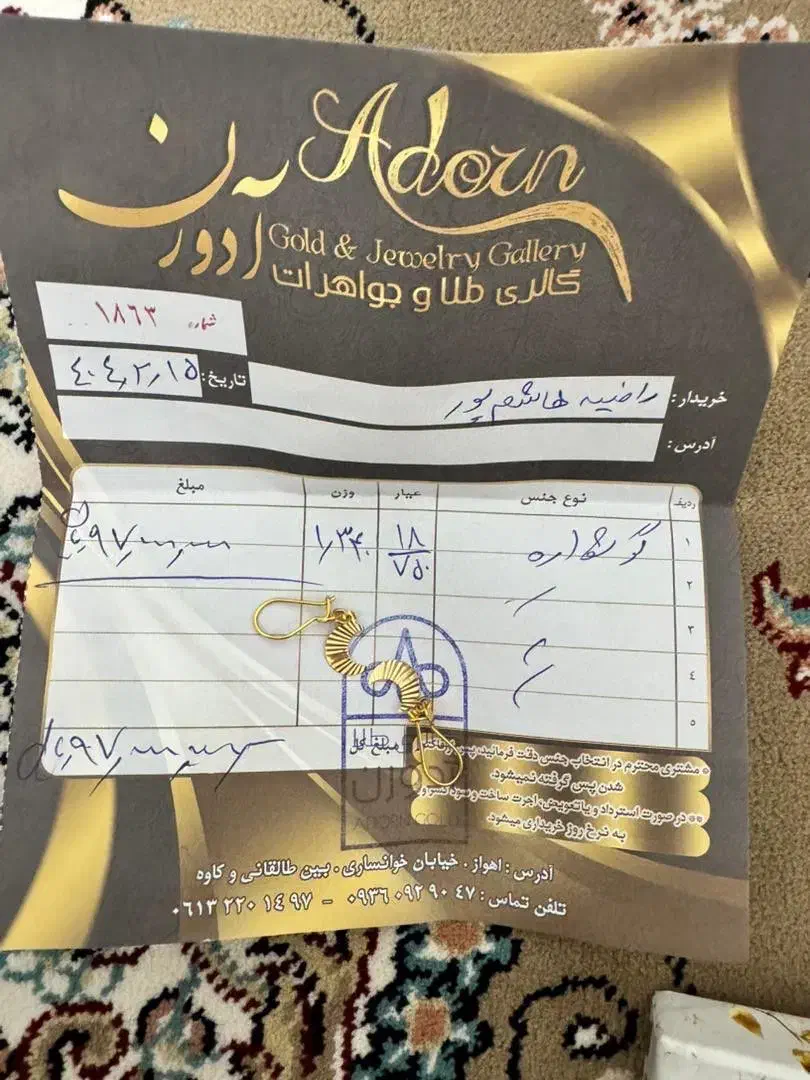 Adorn
آدورن
Gold & Jewelry Gallery
گالری طلا و جواهرات
شماره ۱۸۶۳
تاریخ: ۴۰۴٫۲٫۱۵
خریدار: راضیه هاشم پور
آدرس:
ردیف نوع جنس عیار وزن مبلغ
۱ گوشواره ۱۸/۷۵۰ ۱٫۳۴۰
۲
۳
۴
۵
مبلغ کل
* مشتری محترم در انتخاب جنس دقت فرمائید، پس از
شدن پس گرفته نمیشود.
** در صورت استرداد و یا تعویض، اجرت ساخت و سود کسر و
به نرخ روز خریداری میشود.
ADORN GOLD
آدرس: اهواز. خیابان خوانساری. بین طالقانی و کاوه
تلفن تماس: ۰۹۳۶ ۰۹۲ ۹۰ ۴۷ - ۰۶۱۳ ۲۲۰ ۱۴ ۹۷